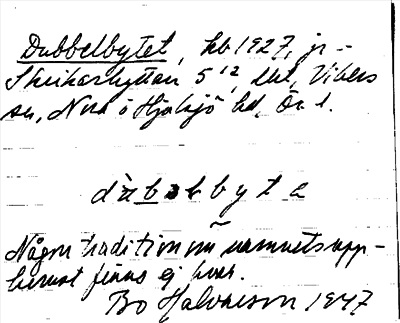 Dubbelbytet, hb 1927, jr -
Skrikarhyttan 5 12, Vikers
sn, Nora o Hjulsjö bd, Ör l.
dàbəlbyte
Någon tradition om namnets upp-
komst finns ej kvar.
Bo Halvarson 1947